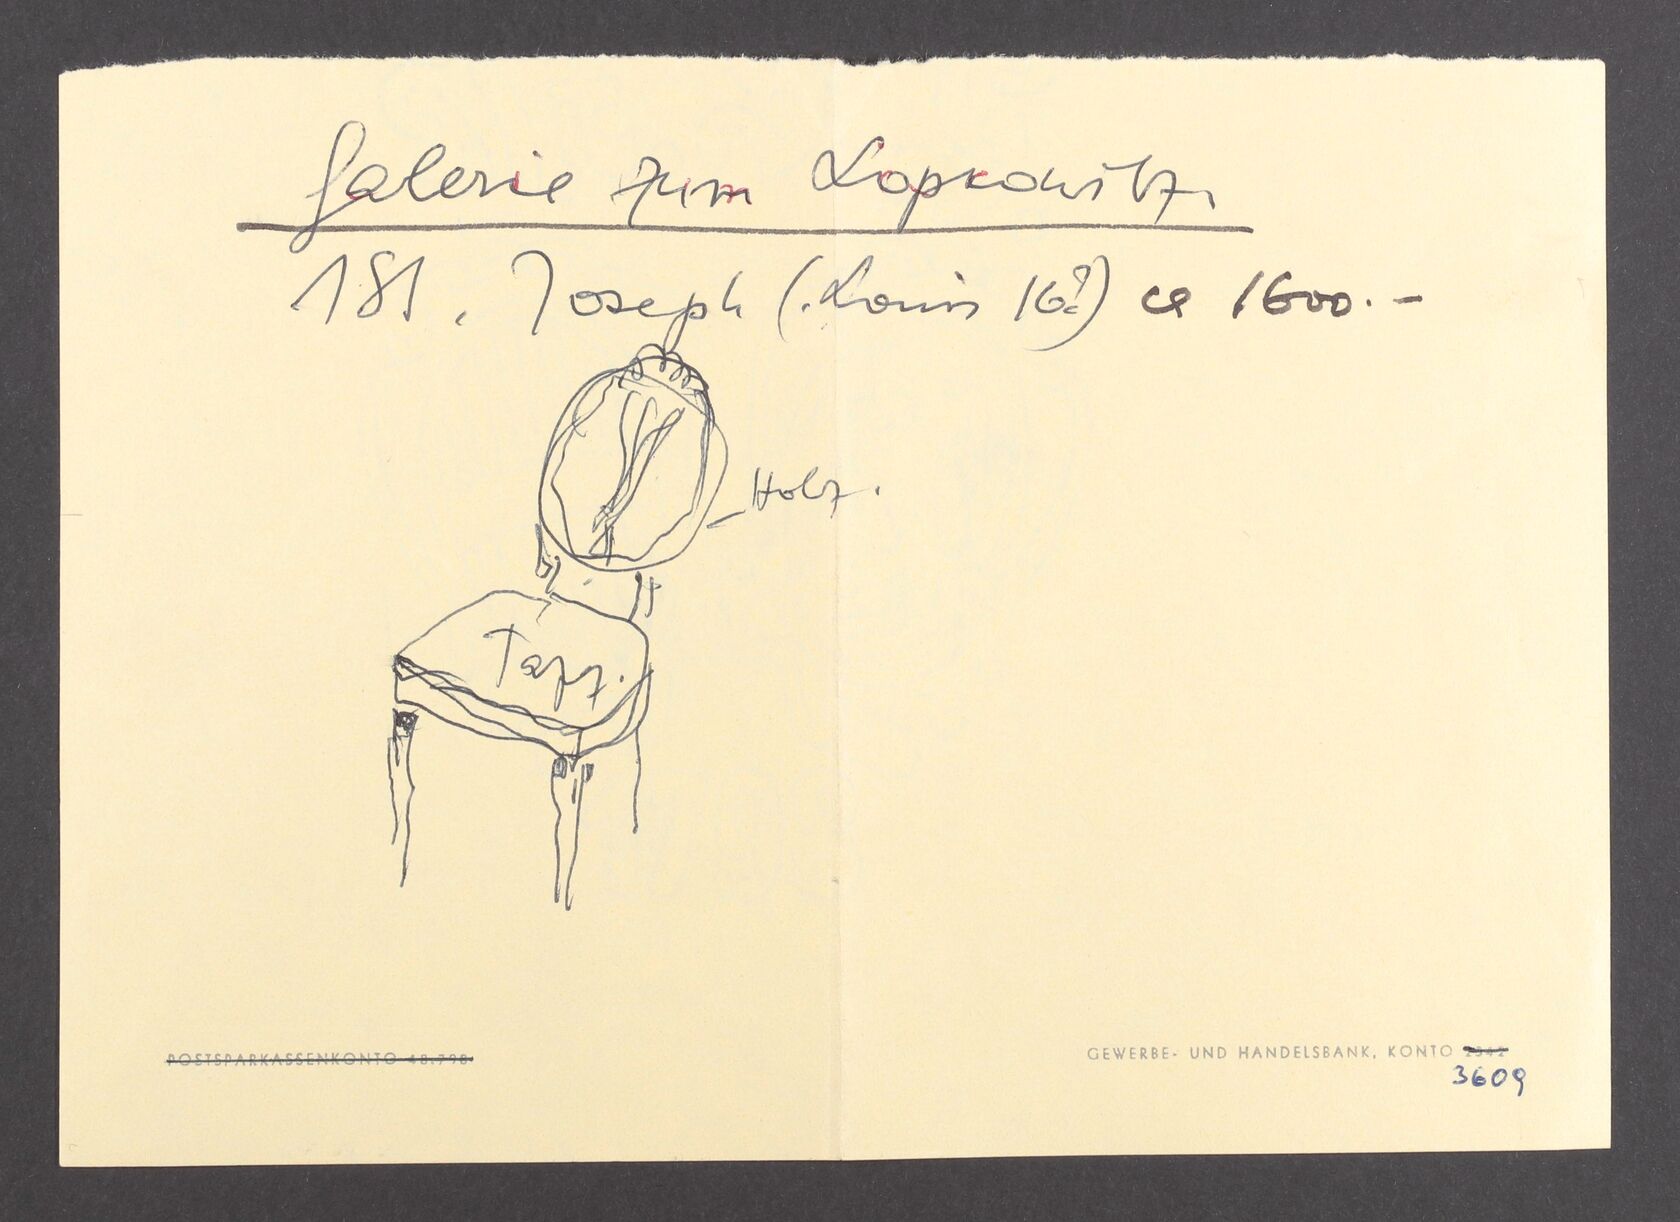 Galerie zum Lopkowitz.
181. Joseph (Louis 16?) ca 1600.-
Holz.
Tapz.
POSTSPARKASSENKONTO 48.798
GEWERBE- UND HANDELSBANK, KONTO
3609